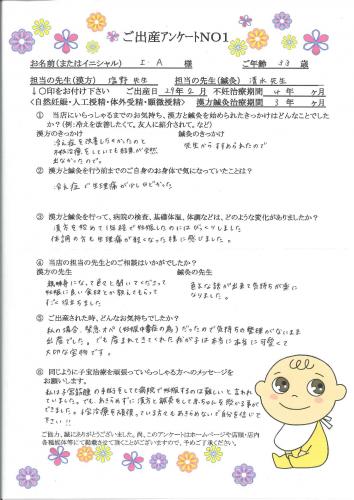 ご出産アンケートNO1
お名前(またはイニシャル) I.A 様 ご年齢 33 歳
担当の先生(漢方) 塩野 先生 担当の先生(鍼灸) 清水 先生
↓○印をお付け下さい ご出産日 29年2月 不妊治療期間 4年 ヶ月
<自然妊娠・人工授精・体外受精・顕微授精> 漢方鍼灸治療期間 3年 ヶ月
① 当店にいらっしゃるまでのお気持ち、漢方と鍼灸を始められたきっかけはどんなことでした
か?(例:冷えを改善したくて。友人に紹介されて。など)
漢方のきっかけ 鍼灸のきっかけ
冷え症を治したかったのと 先生からすすめられたので
不妊治療をしていても結果が全然
出なかったので。
② 漢方と鍼灸を行う前までのご自身のお身体で気になっていたことは?
冷え症で生理痛がひどかった
③ 漢方と鍼灸を行って、病院の検査、基礎体温、体調などは、どのような変化がありましたか?
漢方を始めて1週間で妊娠したのにはびっくりしました
体調の方も生理痛が軽くなった様に感じました。
④ 当店の担当の先生とのご相談はいかがでしたか?
漢方の先生 鍼灸の先生
親身になって色々と聞いてくださって 色々な話が出来て気持ちが楽に
妊娠に良い食材とか教えてもらって なりました。
すごく役立ちました
⑤ ご出産された時、どんなお気持ちでしたか?
私の場合、緊急オペ(妊娠中毒症の為)だったので気持ちの整理がないまま
出産でした。でも産まれてきてくれた我が子は本当に本当に可愛くて
大切な宝物です。
⑥ 同じように子宝治療を頑張っていらっしゃる方へのメッセージを
お願いします。
私は子宮筋腫の手術をしてて病院で妊娠するのは難しいと言われ
ていました。でも、あきらめずに漢方と鍼灸をして赤ちゃんを授かる事が
できました。不妊治療を頑張っている方々もあきらめないで自分を信じて
下さい!!
ご協力、誠にありがとうございました。尚、このアンケートはホームページや店頭・店内
各種媒体等にて掲載させて頂くことがございますので、予めご了承ください。